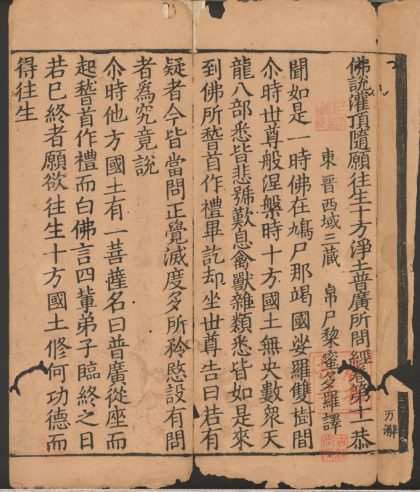 佛說灌頂隨願往生十方淨土普廣所問經卷第十一 恭
東晉西域三藏 帛尸黎蜜多羅譯
聞如是一時佛在鳩尸那竭國娑羅雙樹間
尒時世尊般涅槃時十方國土無央數衆天
龍八部悉皆悲號歎息禽獸雜類悉皆如是來
到佛所嵆首作禮畢訖却坐世尊告曰若有
疑者今皆當問正覺滅度多所矜愍設有問
者為究竟說
尒時他方國土有一菩薩名曰普廣從座而
起嵆首作禮而白佛言四輩弟子臨終之日
若已終者願欲往生十方國土修何功德而
得往生